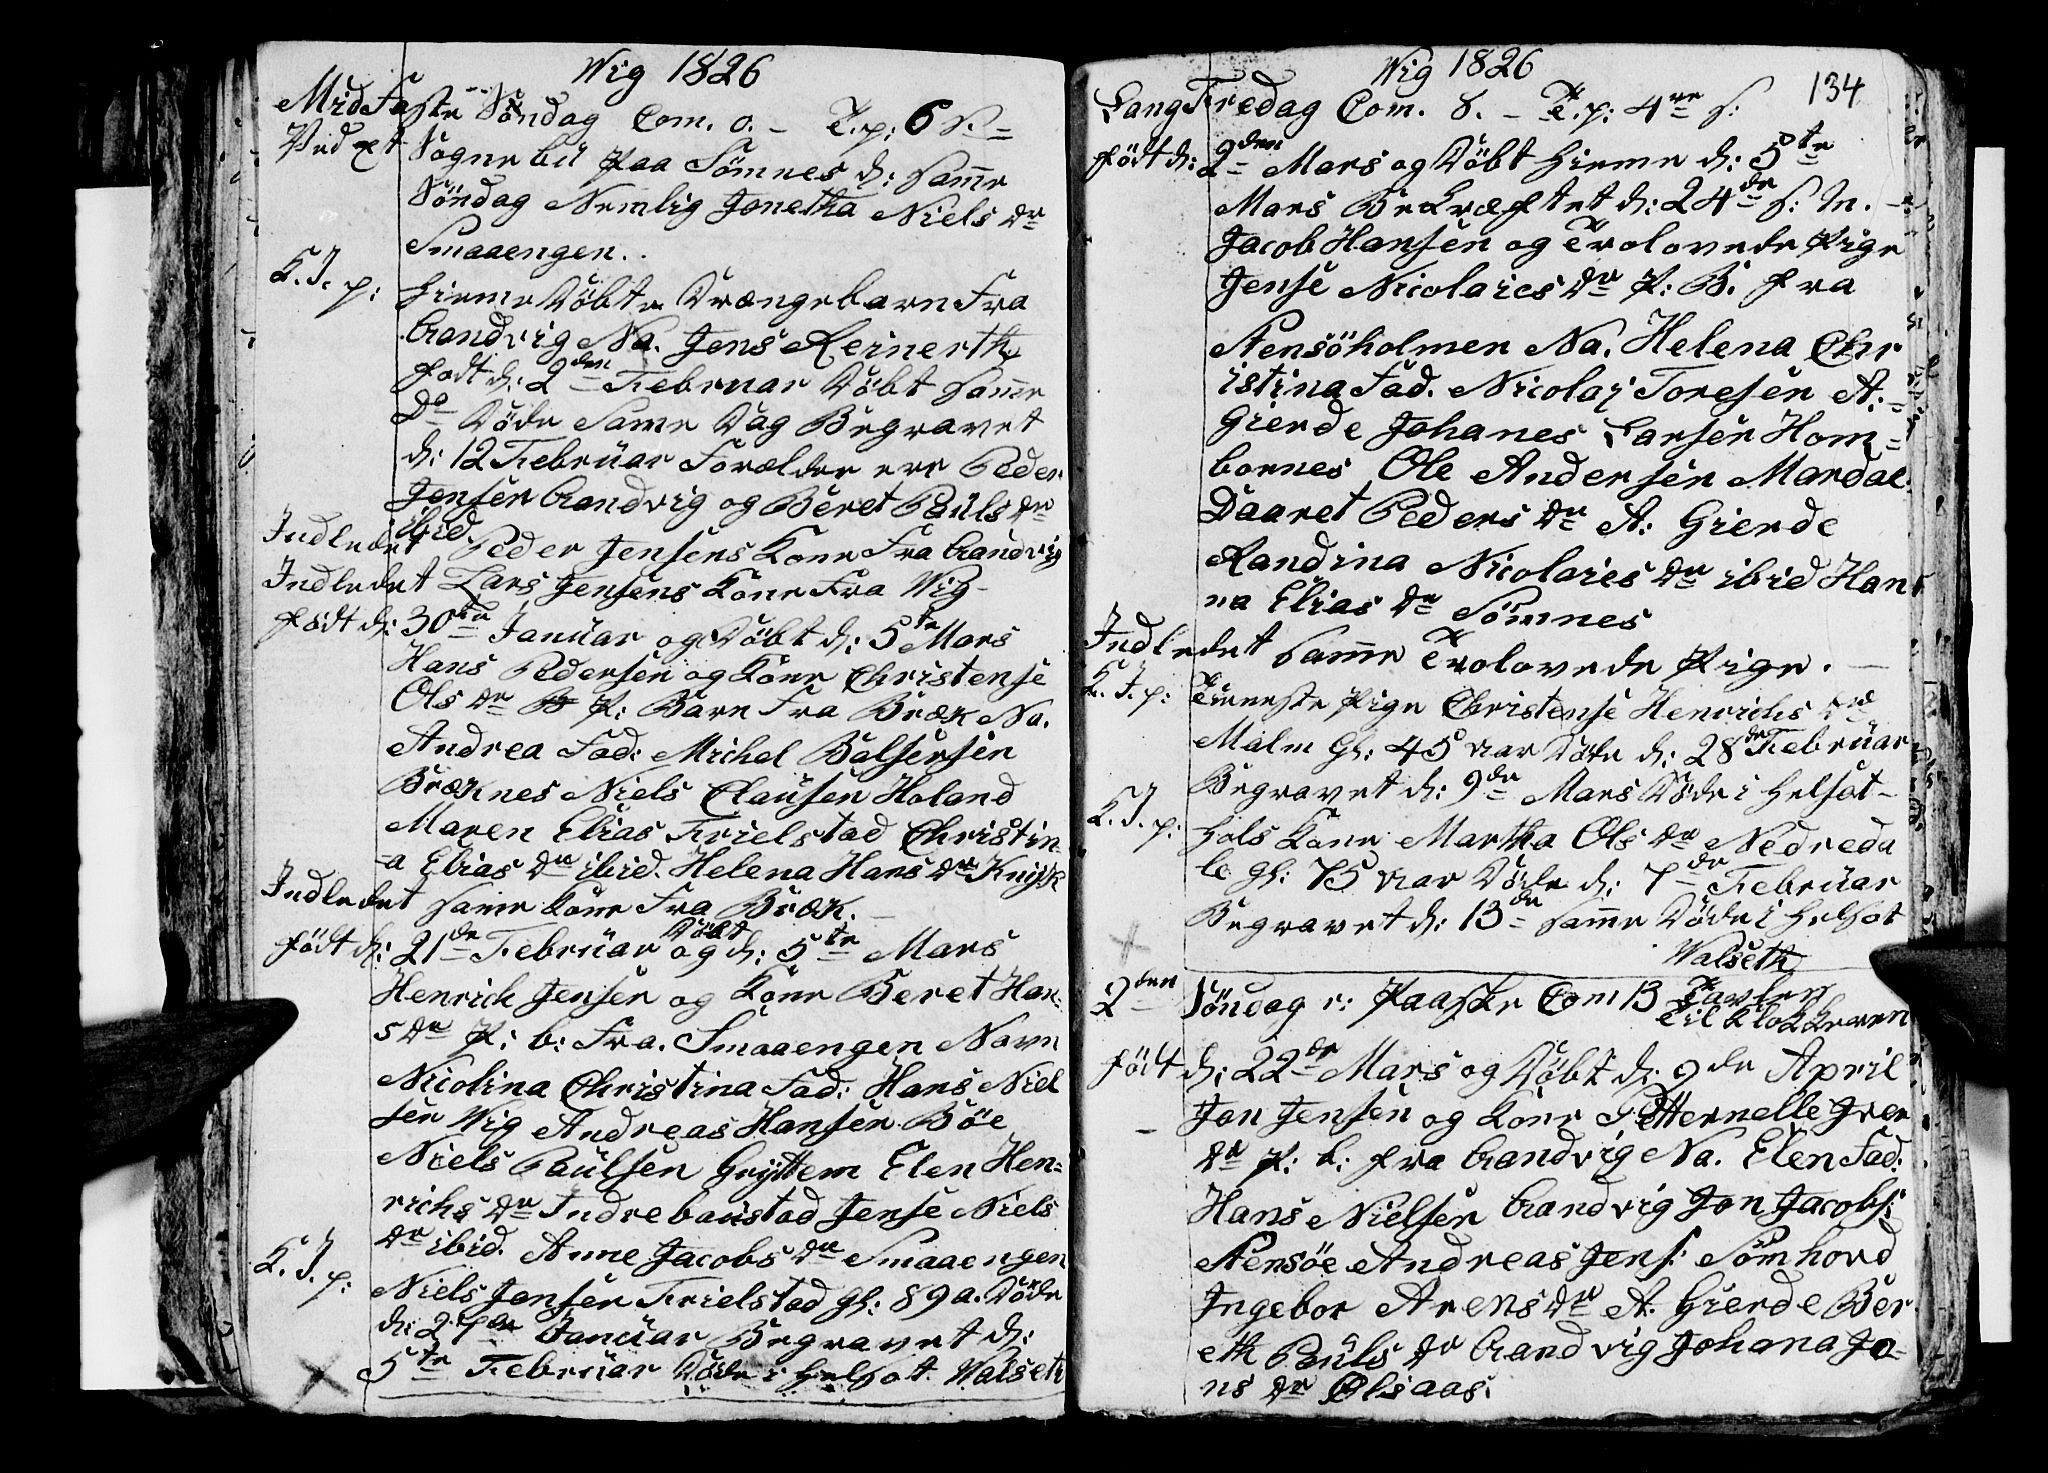 Wig 1826
MidFaste Søndag Com. 0. – T. p: 6 S. =
Ved et Sognebü paa Sömnes d: samme
Söndag Nemlig Jonetha Niels Dr
Smaaengen..
L. J. p: hieme Döbte Drængebarn Fra
Gandvig Na. Jens Reinerth
födt d: 2den Februar Döbt samme
Do Döde Same Dag Begravet
d: 12 Februar Forældre ere Peder
Jensen Gandvig og Beret Paüls Dr
ibid
Indledet Peder Jensens Kone Fra Gandvig
Indledet Lars Jensens Kone Fra Wig –
födt d: 30te Januar og Döbt d: 5te Mars
Hans Pedersen og Kone Christense
Ols Dr P: Barn Fra Bræk Na.
Andrea Fad: Michel Balsersen
Bræknes Niels Clausen Holand
Maren Elias Frielstad Christin-
-a Elias Dr ibid. Helena Hans Dr Knipk
Indledet same Kone Fra Bræk. –
födt d: 21de Februar og Döbt d: 5te Mars
Henrich Jensen og Kone Beret Han-
s Dr P: b: Fra. Smaaengen Navn
Nicolina Christina Fad: Hans Niel
sen Wig Andreas Hansen Böe
Niels Paulsen Gryttem Elen Hen-
richs Dr Indrebaustad Jense Niels
Dr ibid. Anne Jacobs Dr Smaaengen
L. J. p: Niels Jensen Frielstad gl: 89 a. Döde
d: 27de Januar Begravet d:
5te Februar Döde i Helsot. Walseth
Wig 1826
134
LangFredag Com. 8. – T. p: 4re s:
födt d: 2den Mars og Döbt hieme d: 5te
Mars Bekræftet d: 24de s: M. –
Jacob Hansen og Trolovede Pige
Jense Nicolaies Dr P: B. fra
Stensöholmen Na. Helena Chr
istina Fad. Nicolaj Toresen A: =
Gierde Johanes Larsen Hom =
bornes Ole Andersen Mardal
Daaret Peders Dr A: Gierde
Randina Nicolaies Dr ibid Han
na Elias Dr Sömnes
Indledet samme Trolovede Pige. –
L. J. p: Tieneste Pige Christense Henrichs Dr
Malm gl: 45 aar Döde d: 28de Februar
Begravet d: 9de Mars Döde i Helsot –
L. J. p: hols Kone Martha Ols Dr Nedreda
le gl: 75 aar Döde d: 7de Februar
Begravet d: 13de samme Döde i Helsot
Walseth
2den Söndag e: Paaske Com 13 Tavlen
til Klokkeren
födt d: 22de Mars og Döbt d: 9de April
Jon Jensen og Kone Petternelle Iver
Dr P: b: fra Gandvig Na. Elen Fad:
Hans Nielsen Gandvig Jon Jacobs:
Stensöe Andreas Jens: Sömhovd
Ingebor Arens Dr A. Gierde Ber
eth Paüls Dr Gandvig Johana Jo-
ns Dr Olsaas.